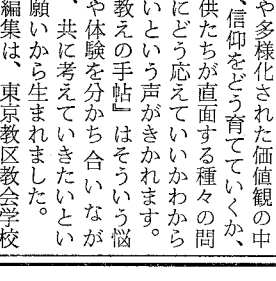 や多様化された価値観の中
、信仰をどう育てていくか、
供たちが直面する種々の問
にどう応えていいかわから
いという声がきかれます。
教えの手帖』はそういう悩
や体験を分かち合いなが
、共に考えていきたいとい
願いから生まれました。
編集は、東京教区教会学校